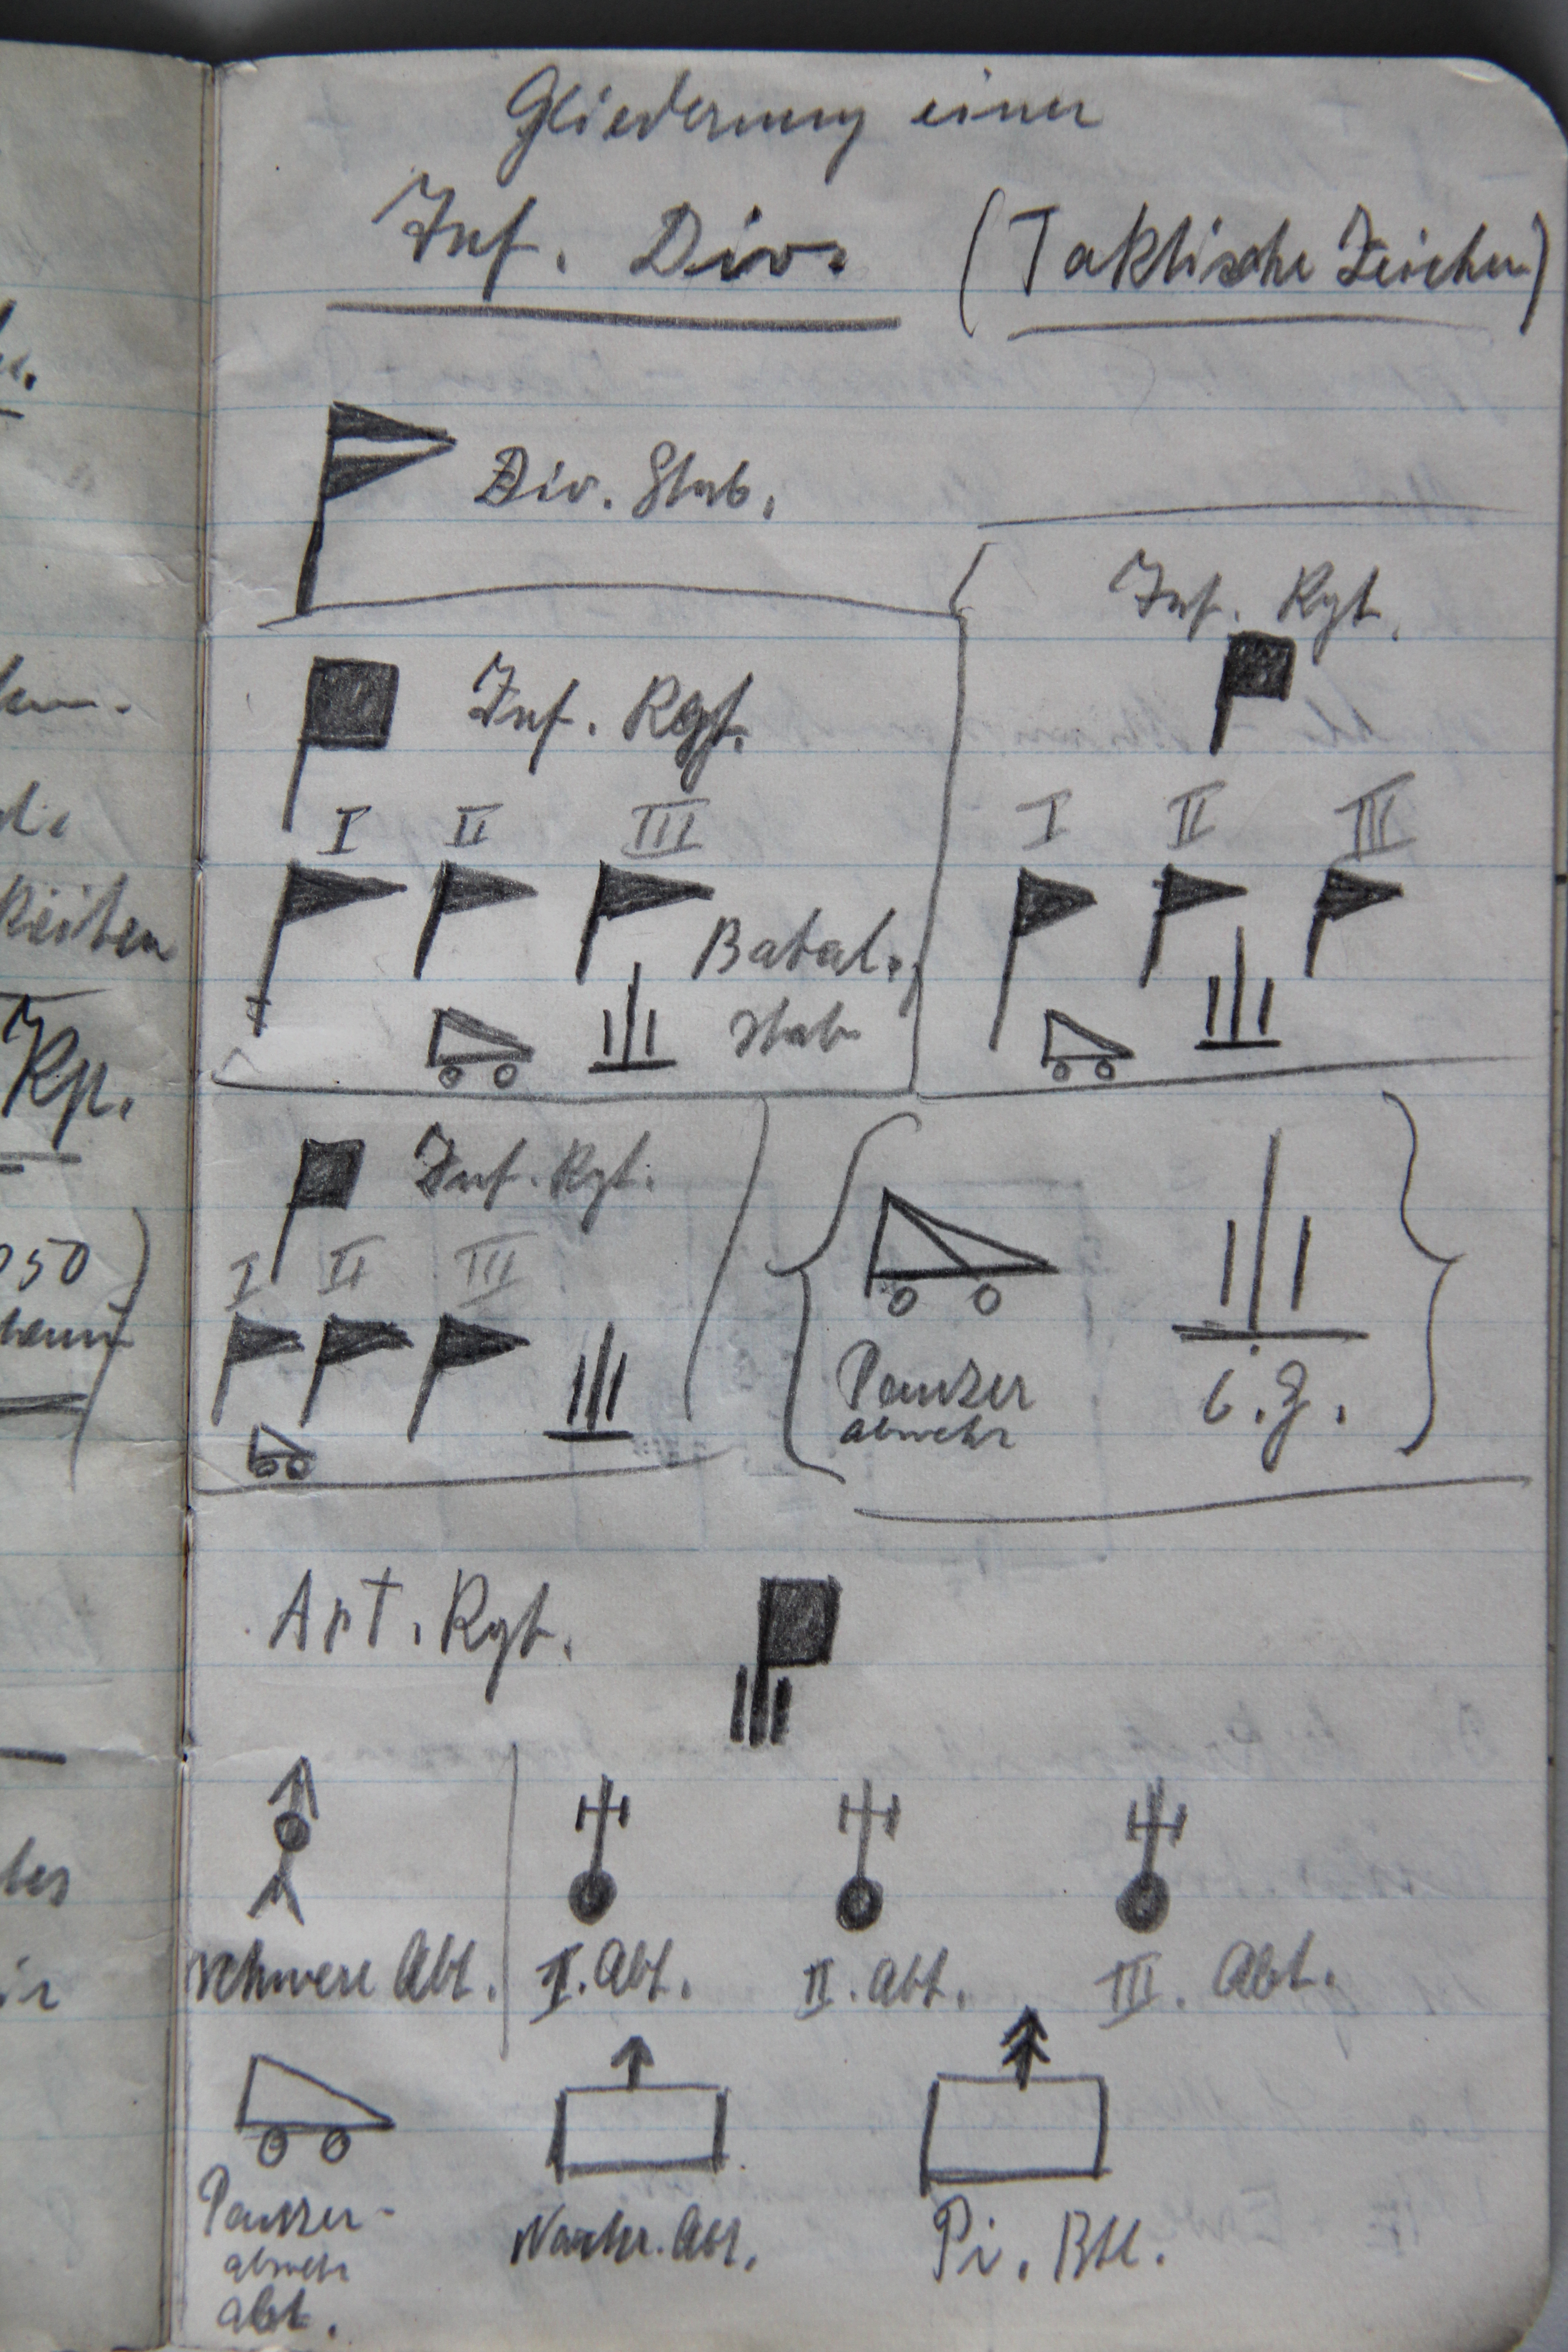 Gliederung einer
Inf. Div. (Taktische Zeichen)
Div. Stab.
Inf. Rgt.
I II III
Batal.
Stab
Inf. Rgt.
I II III
Inf. Rgt.
I II III
Panzer
abwehr
Art. Rgt.
schwere Abt.
I. Abt.
II. Abt.
III. Abt.
Panzer-
abwehr
Abt.
Nachr. Abt.
Pi. Btl.
Reiten
Kp.
050